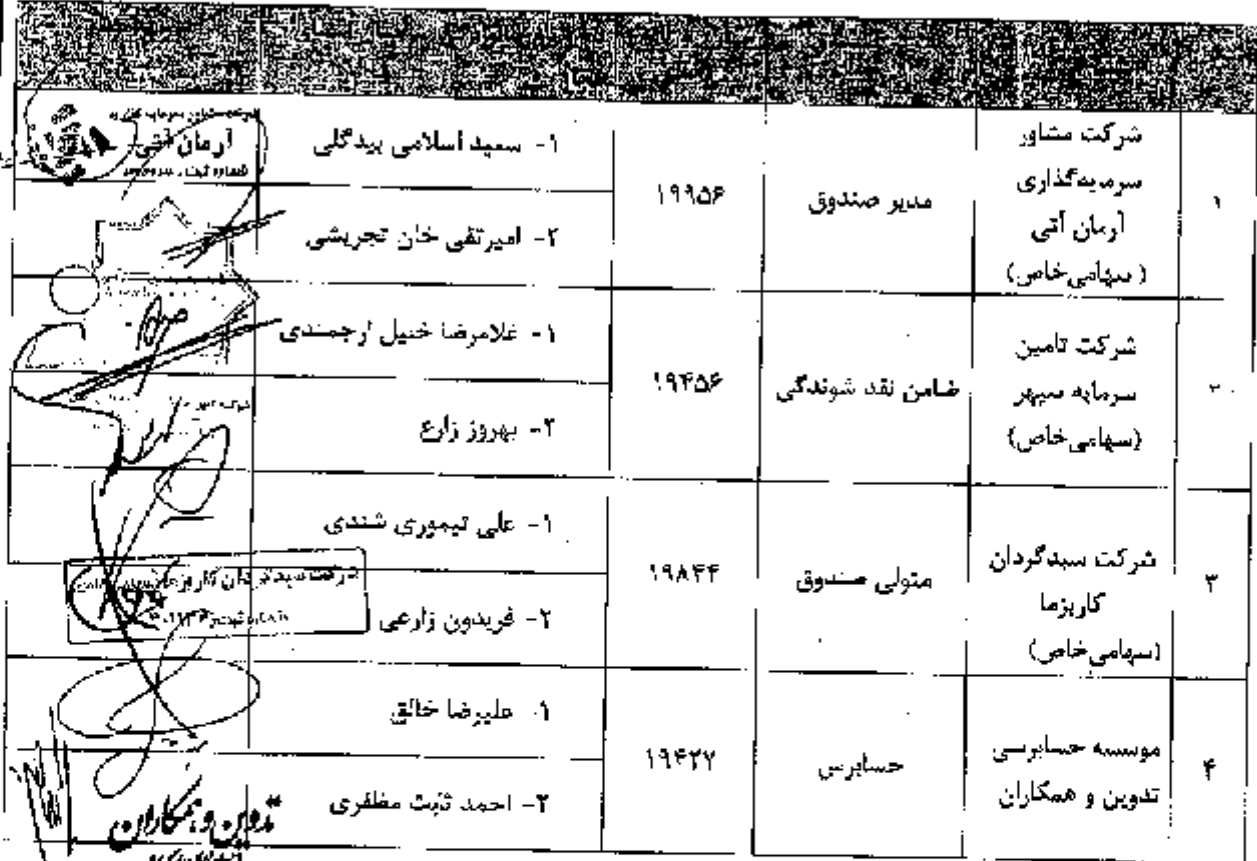 ۱
شرکت مشاور
سرمایه‌گذاری
آرمان آتی
(سهامی‌خاص)
مدیر صندوق
۱۹۹۵۶
۱- سعید اسلامی بیدگلی
۲- امیرتقی خان تجریشی
آرمان آتی
شرکت تامین
سرمایه سپهر
(سهامی‌خاص)
ضامن نقد شوندگی
۱۹۴۵۶
۱- غلامرضا خلیل ارجمندی
۲- بهروز زارع
۳
شرکت سبدگردان
کاریزما
(سهامی‌خاص)
متولی صندوق
۱۹۸۴۴
۱- علی تیموری شندی
۲- فریدون زارعی
شرکت سبدگردان کاریزما
۴
موسسه حسابرسی
تدوین و همکاران
حسابرس
۱۹۴۲۷
۱- علیرضا خالق
۲- احمد ثابت مظفری
تدوین و همکاران